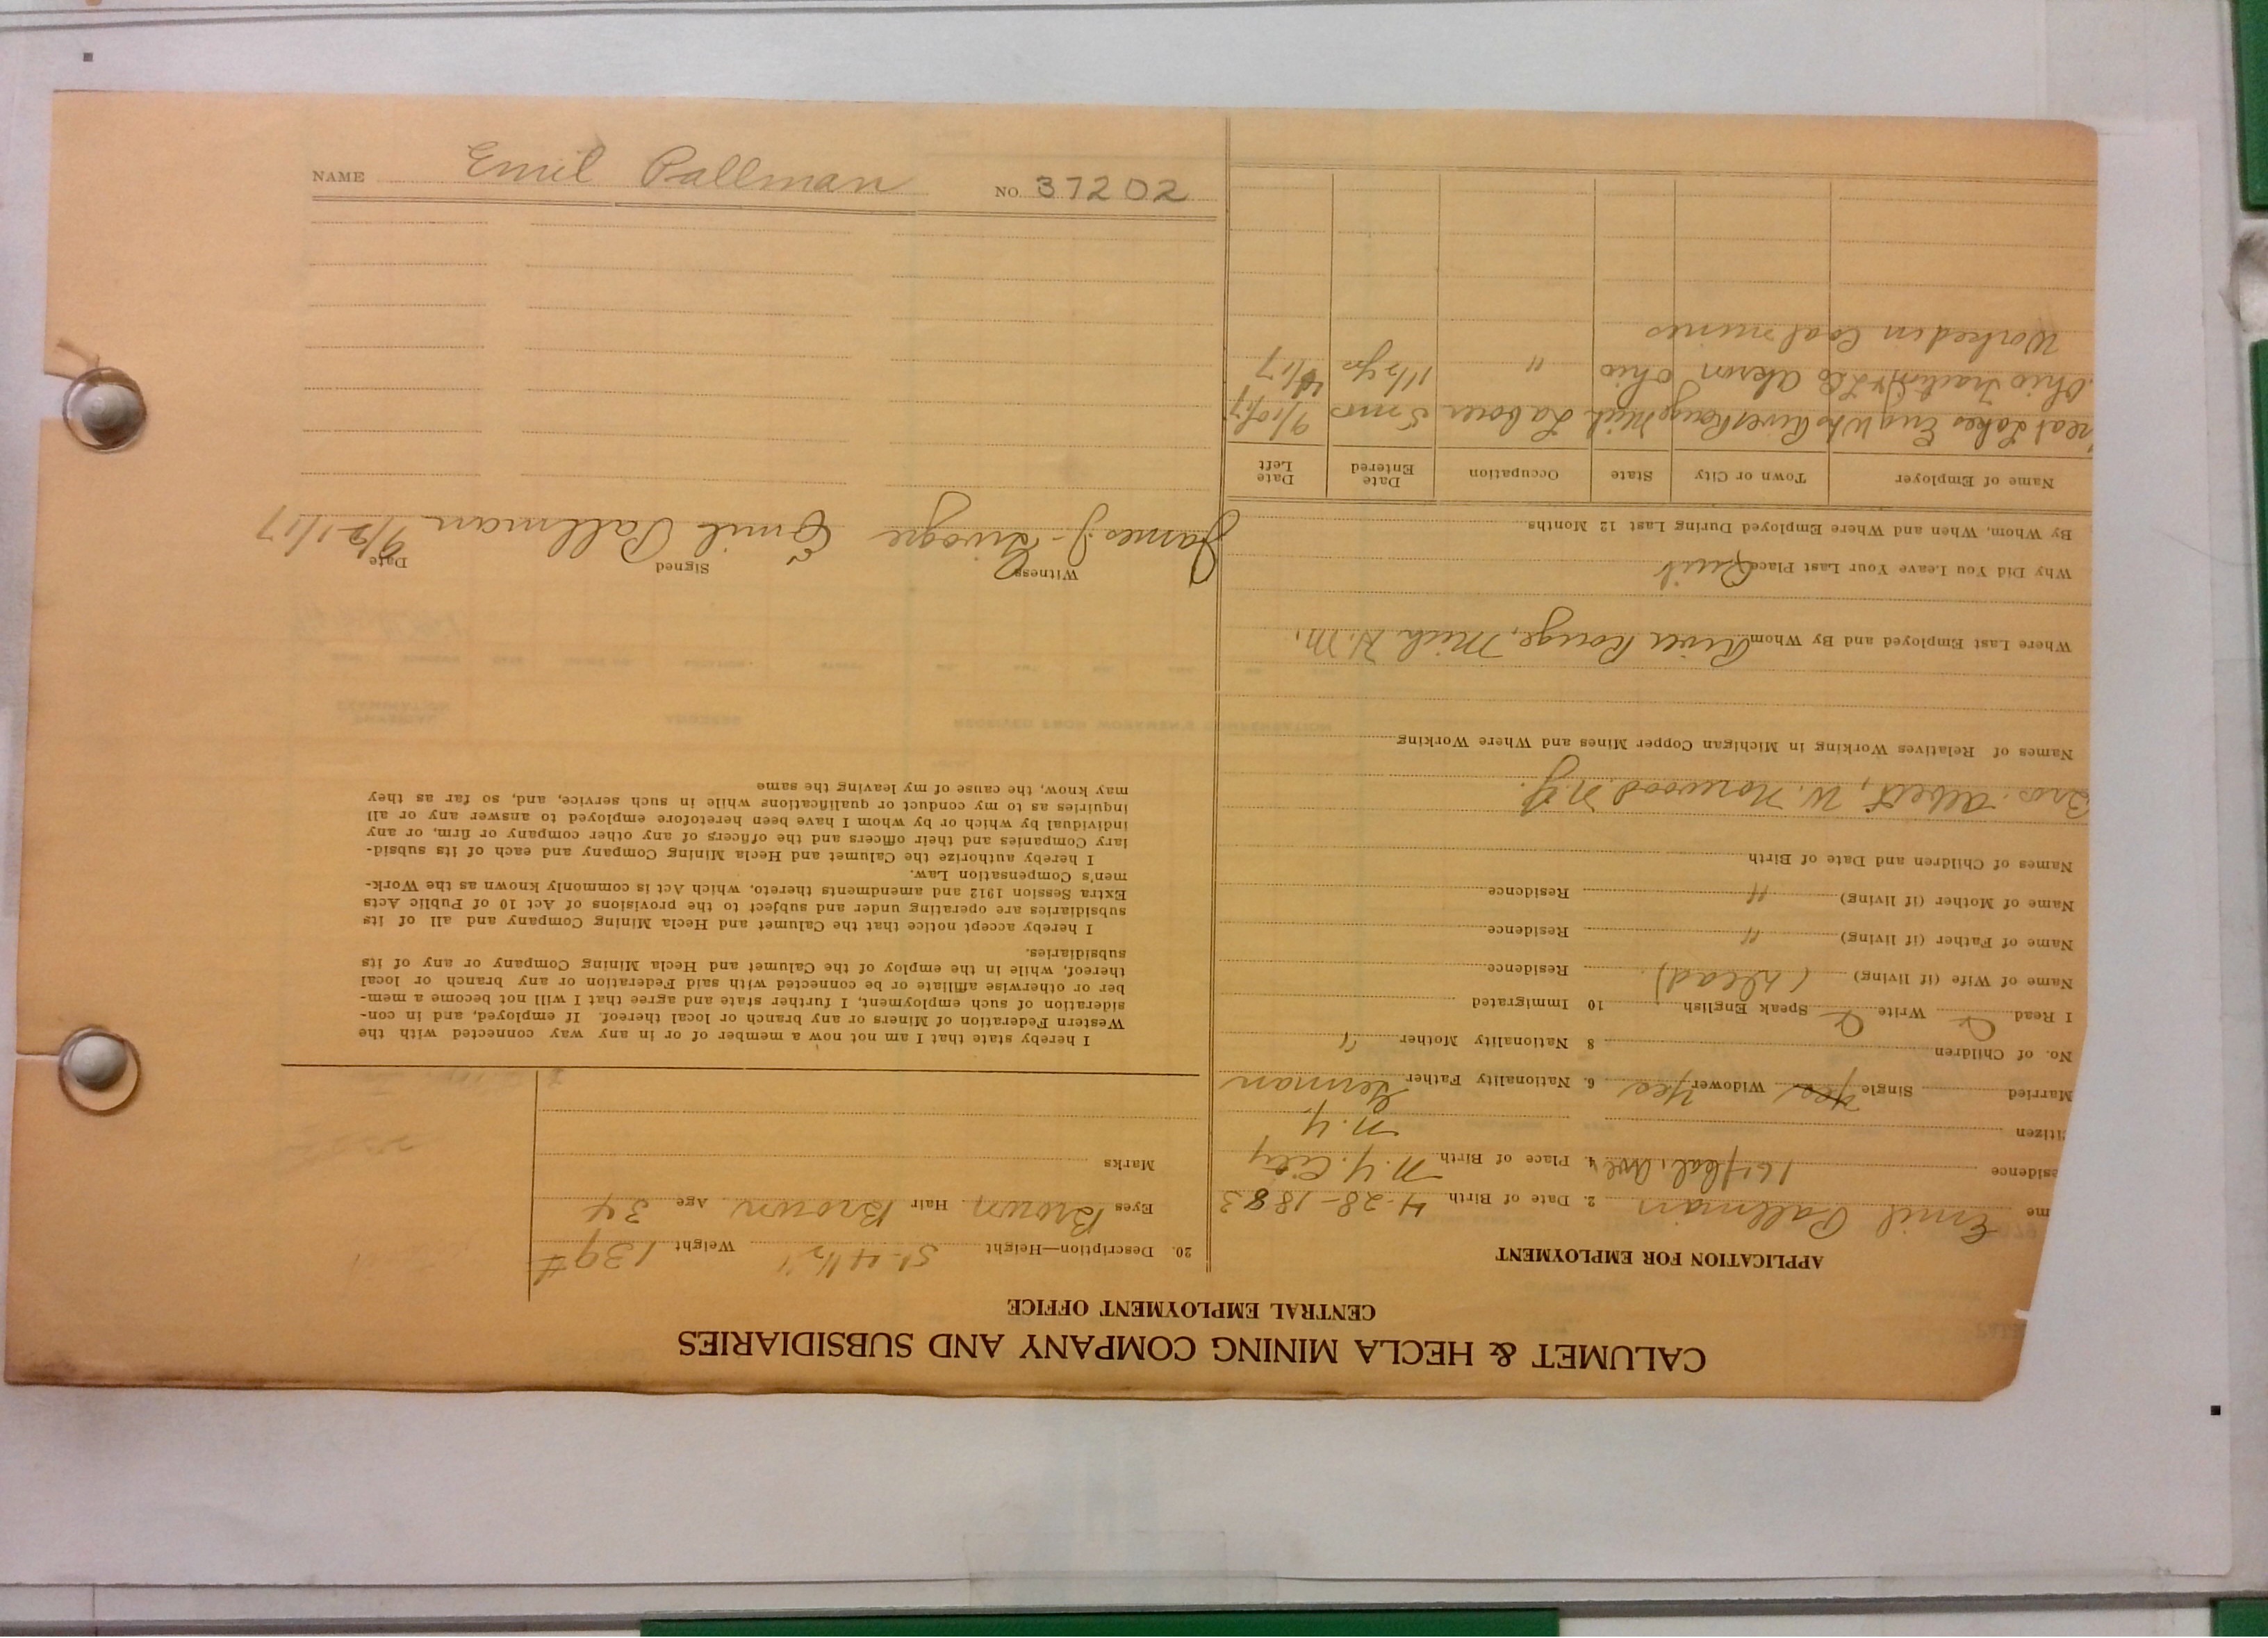 CALUMET & HECLA MINING COMPANY AND SUBSIDIARIES
CENTRAL EMPLOYMENT OFFICE
APPLICATION FOR EMPLOYMENT
me Emil Pallman 2. Date of Birth 4-28-1883
sidence 16 Ave 4. Place of Birth N.Y. City
itizen N.Y.
Married Single Yes Widower Yes 6. Nationality Father German
No. of Children 8 Nationality Mother "
I Read Write Speak English 10 Immigrated
Name of Wife (if living) (Dead) Residence
Name of Father (if living) " Residence
Name of Mother (if living) " Residence
Names of Children and Date of Birth
Bros. Albert, W. Norwood N.J.
Names of Relatives Working in Michigan Copper Mines and Where Working
Where Last Employed and By Whom River Rouge, Mich H.M.
Why Did You Leave Your Last Place Quit
By Whom, When and Where Employed During Last 12 Months
Name of Employer Town or City State Occupation Date Entered Date Left
reat Lakes Eng Wks River Rouge Mich Laborer 5 mos 9/10/17
Ohio Akron Ohio " 1 1/2 yrs /17
Worked in Coal mines
20. Description—Height 5'-4 1/2" Weight 139#
Eyes Brown Hair Brown Age 34
Marks
I hereby state that I am not now a member of or in any way connected with the
Western Federation of Miners or any branch or local thereof. If employed, and in con-
sideration of such employment, I further state and agree that I will not become a mem-
ber or otherwise affiliate or be connected with said Federation or any branch or local
thereof, while in the employ of the Calumet and Hecla Mining Company or any of its
subsidiaries.
I hereby accept notice that the Calumet and Hecla Mining Company and all of its
subsidiaries are operating under and subject to the provisions of Act 10 of Public Acts
Extra Session 1912 and amendments thereto, which Act is commonly known as the Work-
men's Compensation Law.
I hereby authorize the Calumet and Hecla Mining Company and each of its subsid-
iary Companies and their officers and the officers of any other company or firm, or any
individual by which or by whom I have been heretofore employed to answer any or all
inquiries as to my conduct or qualifications while in such service, and, so far as they
may know, the cause of my leaving the same
Witness Signed Date
James J. Emil Pallman 9/21/17
NAME Emil Pallman NO. 37202